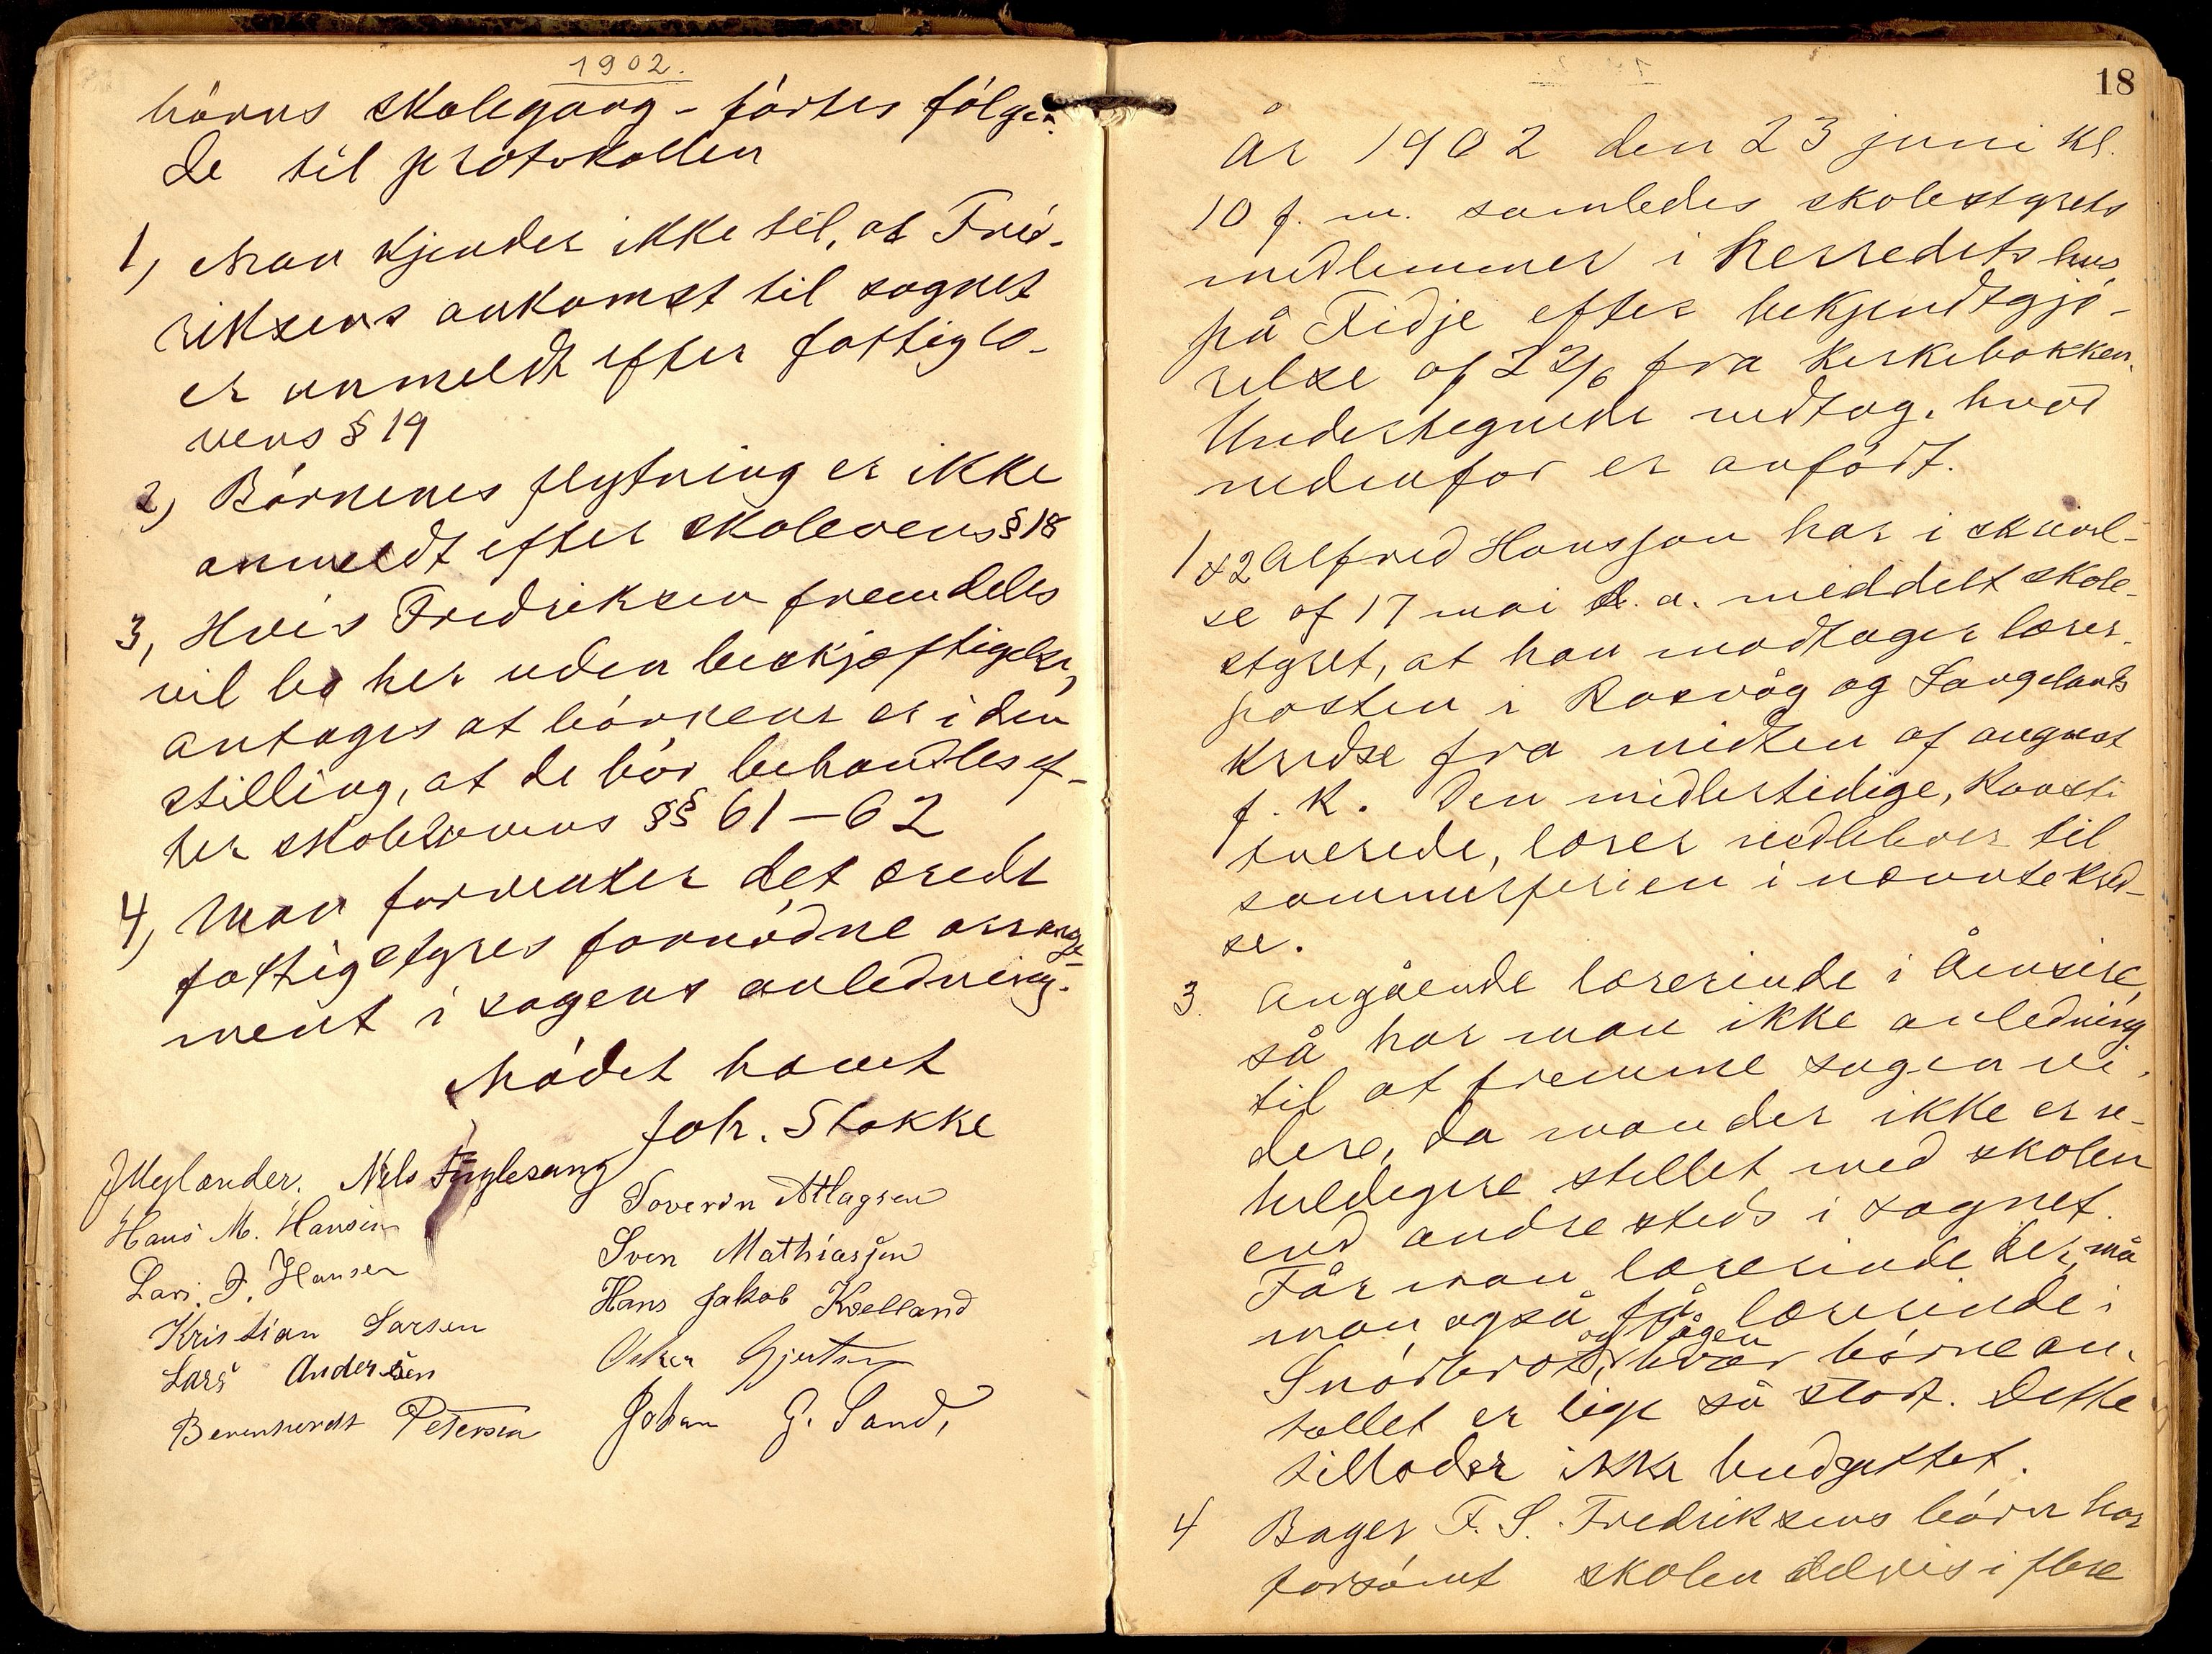 1902.
börns skolegang - förtes følgen-
de til protokollen
1, Man kjender ikke til, at Fred-
riksens ankomst til sognet
er anmeldt efter fattiglo-
vens § 19
2, Börnenes flytning er ikke
anmeldt efter skolevens § 18
3, Hvis Fredriksen fremdeles
vil bo her uden beskjæftigelse,
antages at börnene er i den
stilling, at de bör behandles ef-
ter skolelovens §§ 61-62
4, Man forventer det ærede
fattigstyres fornödne arrange-
ment i sagens anledning.
Mödet hævet
Joh. Stokke
J Mylander. Nils Fuglesang
Hans M. Hansen
Lars. F. Hansen
Kristian Larsen
Lars Andersen
Berenhardt Petersen
Soverin Atlagsen
Sven Mathiassen
Hans Jakob Kvelland
Osker Gjertsen
Johan G. Sand,
18
År 1902 den 23 juni kl.
10 f. m. samledes skolestyrets
medlemmer i herredets hus
på Fidje efter bekjendtgjö-
relse af 22/6 fra kirkebakken.
Undertegnede vedtog, hvad
nedenfor er anført.
1 & 2 Alfred Hansson har i skrivel-
se af 17 mai d. a. meddelt skole-
styret, at han modtager lærer-
posten i Rosvåg og Langelands
kredse fra midten af august
f. k. Den midlertidige, konsti
tuerede, lærer vedbliver til
sommerferien i nævnte kred-
se.
3. Angående lærerinde i Åensire,
så har man ikke anledning
til at fremme sagen vi-
dere, da man der ikke er u-
heldigere stillet med skolen
end andre steds i sognet.
Får man lærerinde der, må
man også få lærerinde i
og Vågen
Snörbrot, hvor börnean-
tallet er lige så stort. Dette
tillader ikke budgettet.
4 Bager F. S. Fredriksens börn har
forsömt skolen delvis i flere